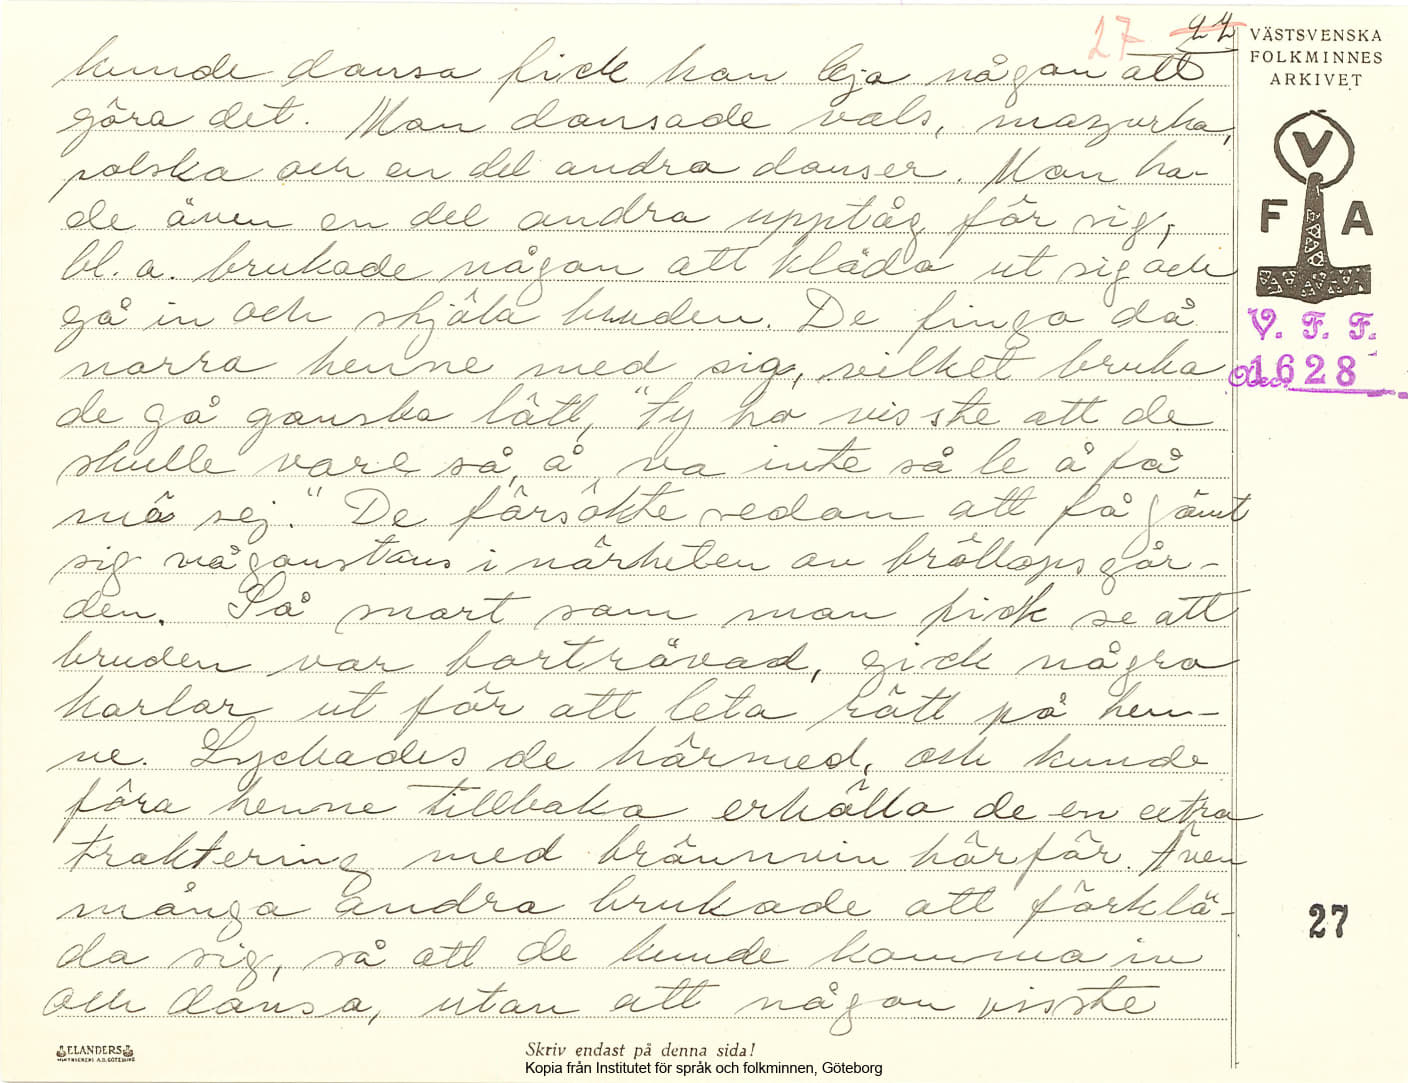 27 27
VÄSTSVENSKA
FOLKMINNES
ARKIVET
kunde dansa fick han leja någon att
göra det. Man dansade vals, mazurka,
polska och en del andra danser. Man ha-
de även en del andra upptåg för sig,
bl. a. brukade någon att kläda ut sig och
gå in och stjäla bruden. De fingo då
narra henne med sig, vilket bruka
de gå ganska lätt, "ty ho visste att de
skulle vare så, å va inte så le å få
mä sej." De försökte sedan att få gömt
sig någonstans i närheten av bröllopsgår-
den. Så snart som man fick se att
bruden var bortrövad, gick några
karlar ut för att leta rätt på hen-
ne. Lyckades de härmed, och kunde
föra henne tillbaka erhölla de en extra
traktering med brännvin härför. Även
många andra brukade att förklä-
da sig, så att de kunde komma in
och dansa, utan att någon visste
V
F A
V. F. F.
Acc. 1628
27
ELANDERS
Skriv endast på denna sida!
Kopia från Institutet för språk och folkminnen, Göteborg